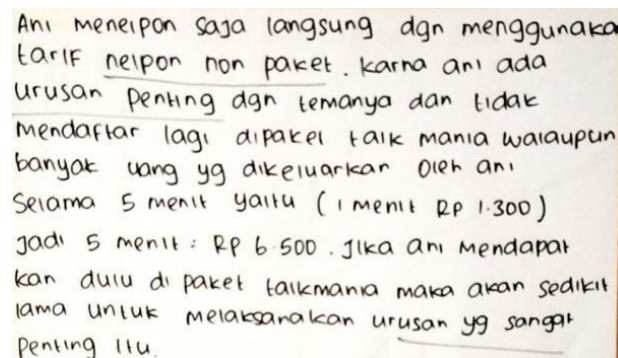 Ani menelpon saja langsung dgn menggunaka
tarif nelpon non paket. karna ani ada
urusan penting dgn temanya dan tidak
mendaftar lagi dipaket talk mania walaupun
banyak uang yg dikeluarkan oleh ani
selama 5 menit yaitu (1 menit Rp 1.300)
Jadi 5 menit : Rp 6.500. Jika ani mendapat
kan dulu di paket talkmania maka akan sedikit
lama untuk melaksanakan urusan yg sangat
penting itu.